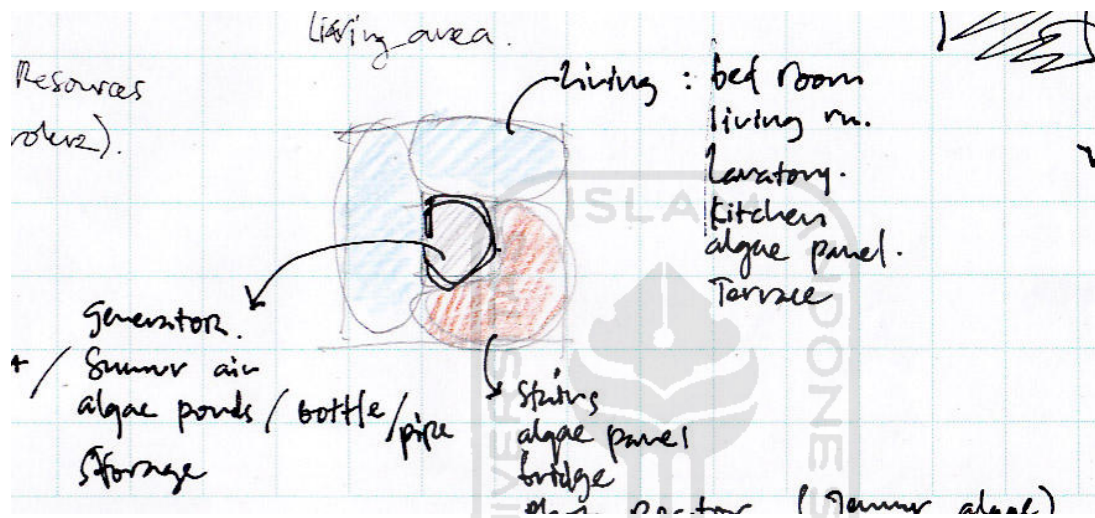 Living area.
Resources
Living : bed room
living rm.
Lavatory.
Kitchen
algae panel.
Terrace
Generator.
+ / Sumur air
algae ponds / bottle / pipe
storage
stairs
algae panel
bridge
ISLAM
INDONES
UNIVERS